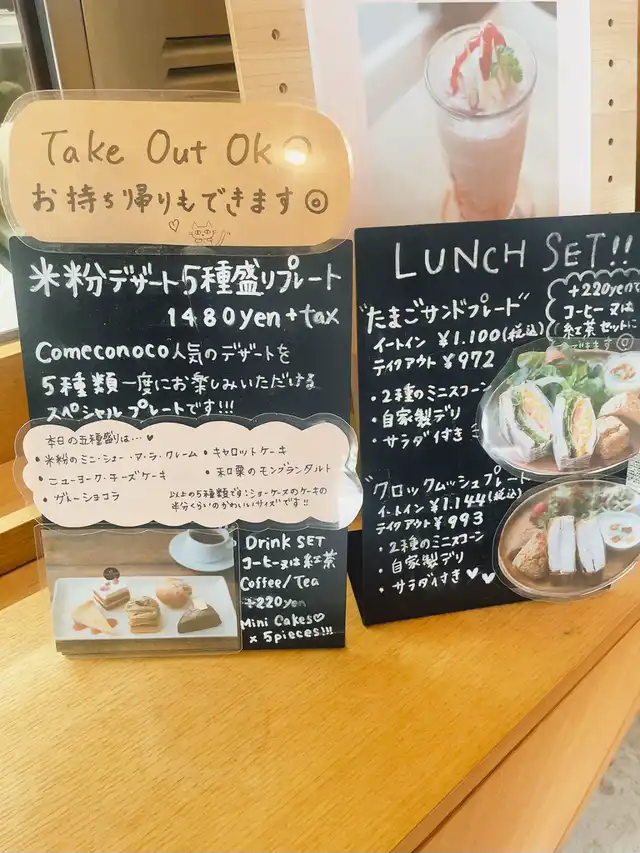 Take Out OK◎
お持ち帰りもできます◎
米粉デザート5種盛りプレート
1480yen+tax
Comeconoco人気のデザートを
5種類一度にお楽しみいただける
スペシャルプレートです!!!
本日の五種盛りは…♥
・米粉のミニ・シュー・ア・ラ・クレーム
・ニューヨーク・チーズケーキ
・ガトーショコラ
・キャロットケーキ
・和栗のモンブランタルト
以上の5種類です!ショーケースのケーキの
半分くらいのかわいいサイズです!!
Drink SET
コーヒー又は紅茶
Coffee/Tea
+220yen
Mini Cakes♡
×5pieces!!!
LUNCH SET!!
+220yenで
コーヒー又は
紅茶セットに
できます◎
"たまごサンドプレート"
イートイン ¥1.100(税込)
テイクアウト ¥972
・2種のミニスコーン
・自家製デリ
・サラダ付き
"クロックムッシュプレート
イートイン ¥1.144(税込)
テイクアウト ¥993
・2種のミニスコーン
・自家製デリ
・サラダ付き♥♥